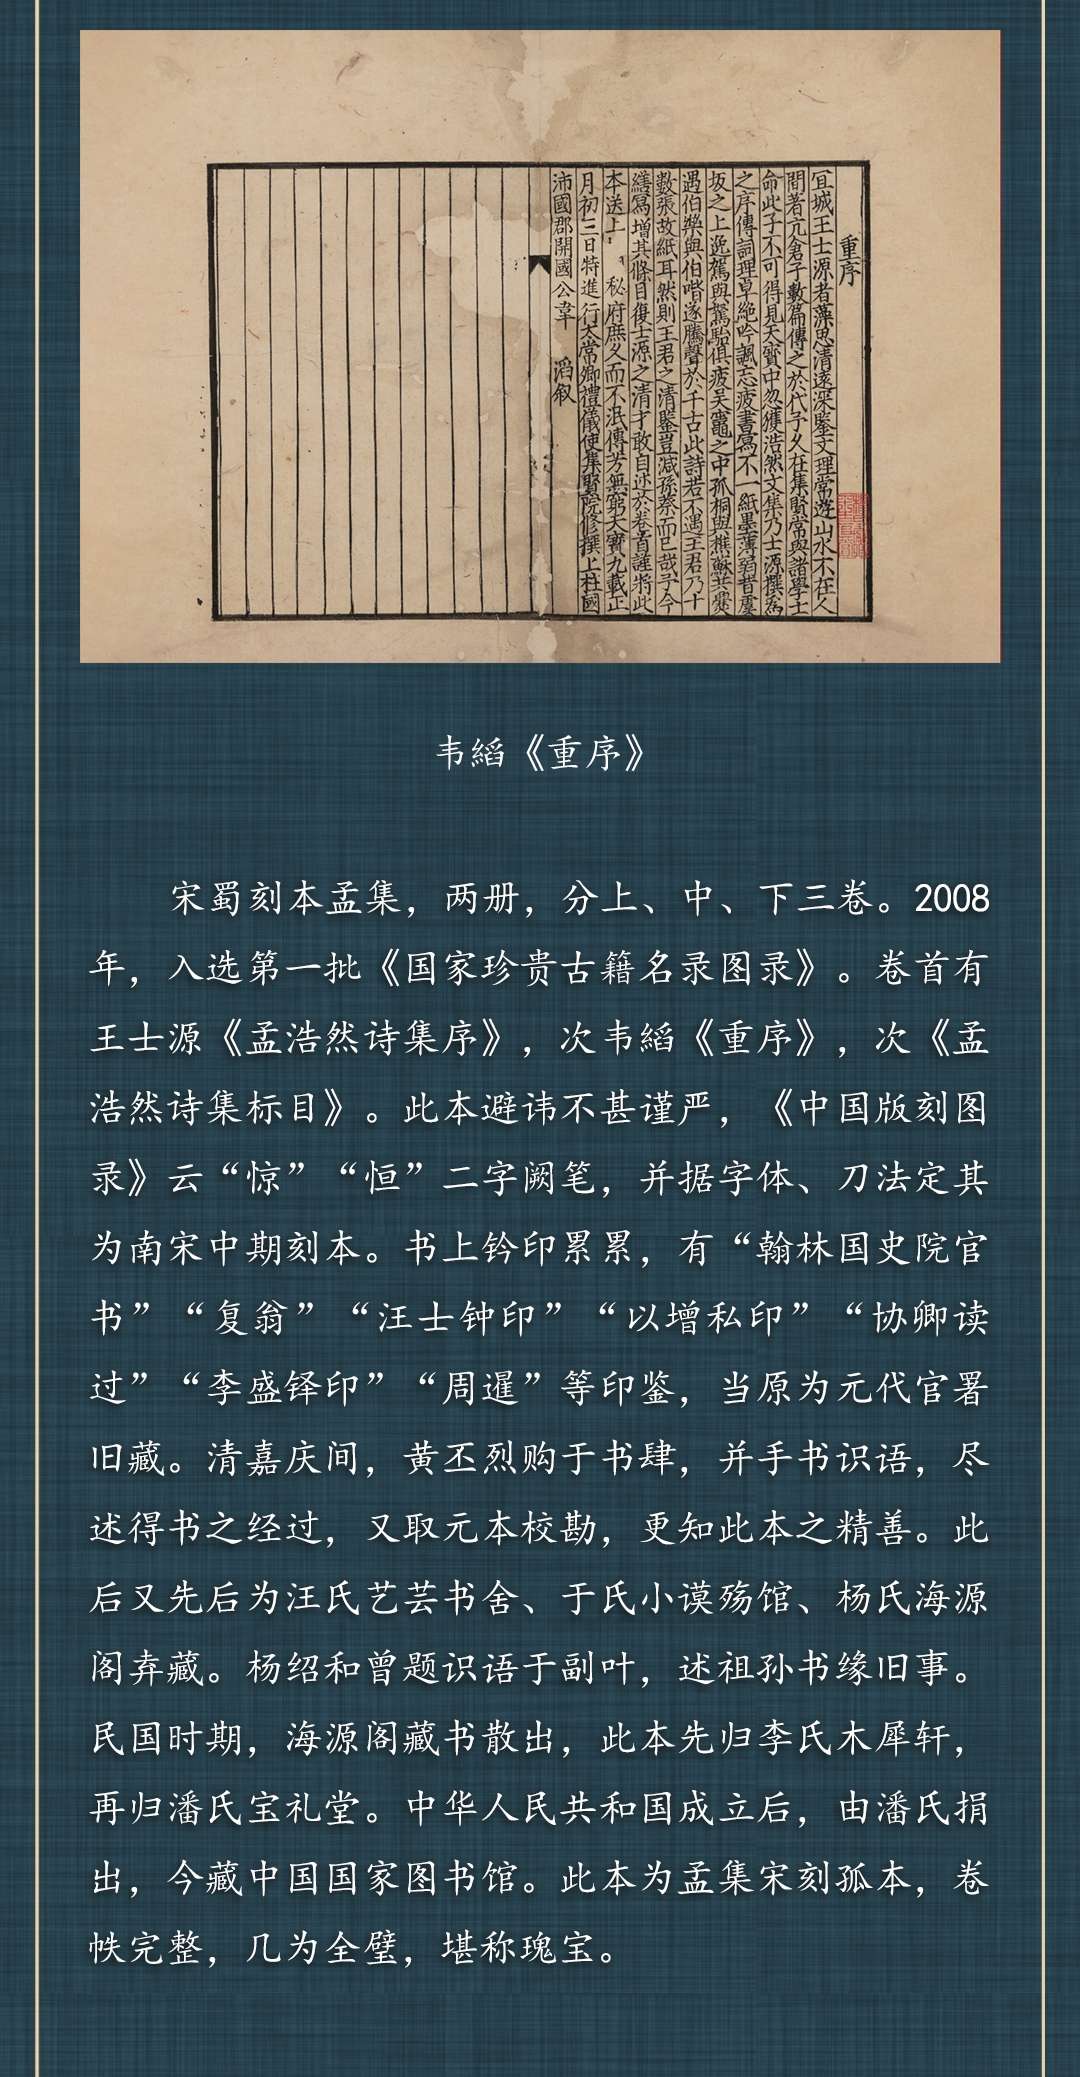 重序
宜城王士源者藻思清遠深鑒文理常遊山水不在人
間著亢倉子數篇傳之於代予久在集賢常與諸學士
命此子不可得見天寶中忽獲浩然文集乃士源撰爲
之序傳詞理卓絶吟諷忘疲書寫不一紙墨薄弱昔虞
坂之上逸駕與駑駘俱疲吳竈之中孤桐與樵蘇共爨
遇伯樂與伯喈遂騰聲於千古此詩若不遇王君乃十
數張故紙耳然則王君之清鑒豈減孫蔡而已哉予今
繕寫增其條目復士源之清才敢自述於卷首謹將此
本送上 秘府庶久而不泯傳芳無窮天寶九載正
月初三日特進行太常卿禮儀使集賢院修撰上柱國
沛國郡開國公韋 滔叙
韦縚《重序》
宋蜀刻本孟集，两册，分上、中、下三卷。2008
年，入选第一批《国家珍贵古籍名录图录》。卷首有
王士源《孟浩然诗集序》，次韦縚《重序》，次《孟
浩然诗集标目》。此本避讳不甚谨严，《中国版刻图
录》云“惊”“恒”二字阙笔，并据字体、刀法定其
为南宋中期刻本。书上钤印累累，有“翰林国史院官
书”“复翁”“汪士钟印”“以增私印”“协卿读
过”“李盛铎印”“周暹”等印鉴，当原为元代官署
旧藏。清嘉庆间，黄丕烈购于书肆，并手书识语，尽
述得书之经过，又取元本校勘，更知此本之精善。此
后又先后为汪氏艺芸书舍、于氏小谟殇馆、杨氏海源
阁弆藏。杨绍和曾题识语于副叶，述祖孙书缘旧事。
民国时期，海源阁藏书散出，此本先归李氏木犀轩，
再归潘氏宝礼堂。中华人民共和国成立后，由潘氏捐
出，今藏中国国家图书馆。此本为孟集宋刻孤本，卷
帙完整，几为全璧，堪称瑰宝。